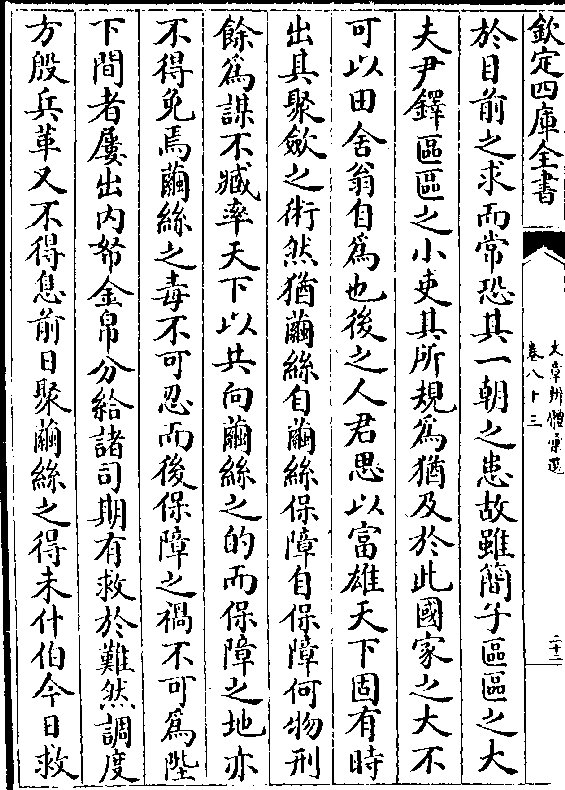 欽定四庫全書
文章辨體彙選
卷八十三
二十二
於目前之求而常恐其一朝之患故雖簡子區區之大
夫尹鐸區區之小吏其所規為猶及於此國家之大不
可以田舍翁自為也後之人君思以富雄天下固有時
出其聚斂之術然猶繭絲自繭絲保障自保障何物刑
餘為謀不臧率天下以共向繭絲之的而保障之地亦
不得免焉繭絲之毒不可忍而後保障之禍不可為陛
下間者屢出内帑金帛分給諸司期有救於難然調度
方殷兵革又不得息前日聚繭絲之得未什伯今日救